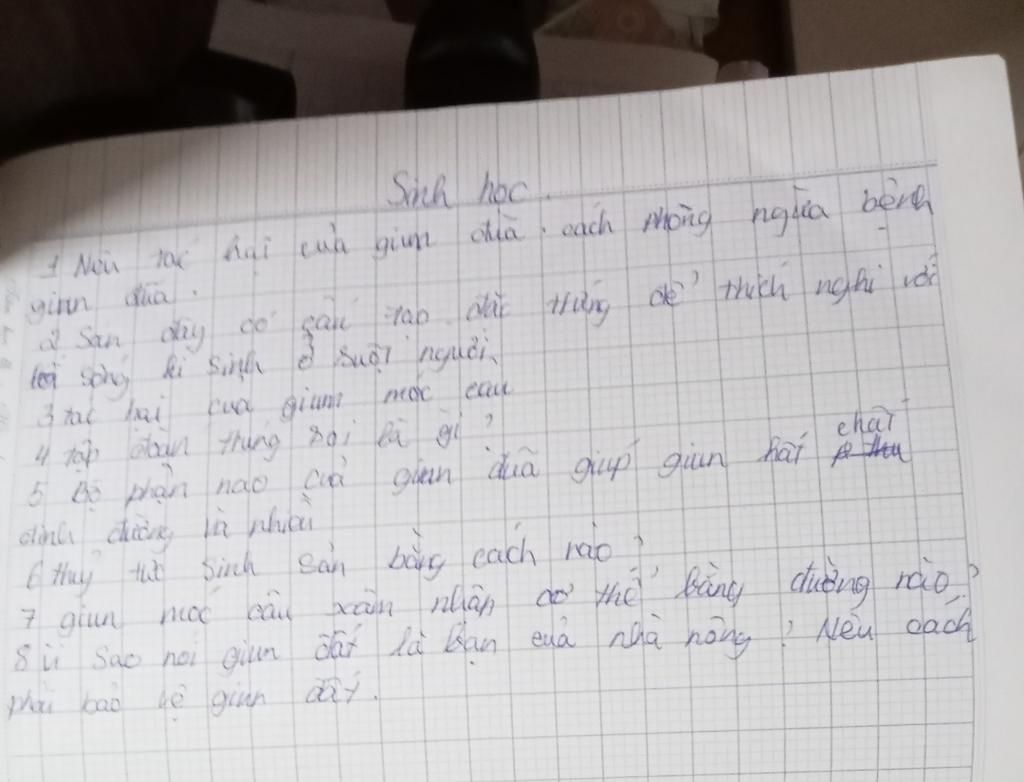 Sinh học.
1 Nêu tác hại của giun đũa. cách phòng ngừa bệnh
giun đũa.
2 San dây có cấu tạo đặc trưng để thích nghi với
lối sống kí sinh ở ruột người.
3 tác hại của giun móc câu
4 tập đoàn trùng roi là gì?
5 Bộ phận nào của giun đũa giúp giun hút chất
dinh dưỡng là nhiều
6 thuỷ tức sinh sản bằng cách nào?
7 giun móc câu xâm nhập cơ thể bằng đường nào?
8 Vì sao nói giun đất là bạn của nhà nông? Nêu cách
phải bảo vệ giun đất.